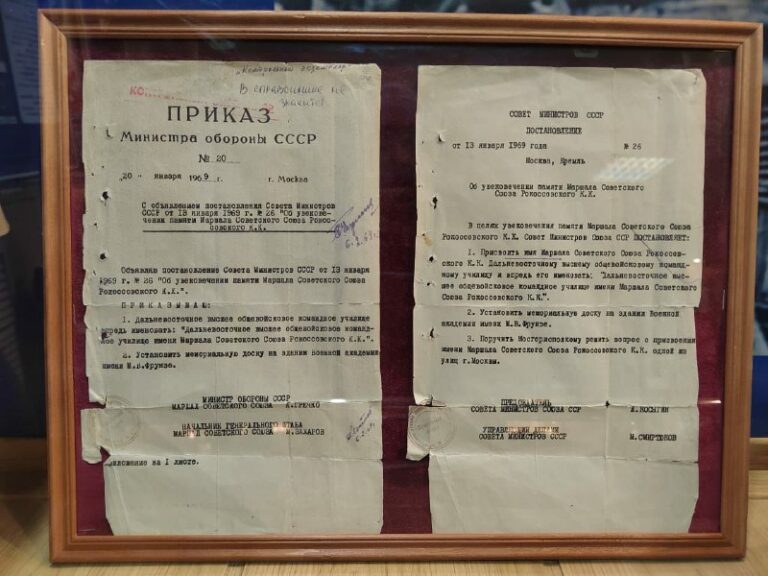 "Контрольный экземпляр"
В справочнике не
ПРИКАЗ
Министра обороны СССР
№ 20
"20" января 1969 г. г. Москва
С объявлением постановления Совета Министров
СССР от 13 января 1969 г. № 26 "Об увекове-
чении памяти Маршала Советского Союза Рокос-
совского К.К.
Объявляю постановление Совета Министров СССР от 13 января
1969 г. № 26 "Об увековечении памяти Маршала Советского Союза
Рокоссовского К.К.".
ПРИКАЗЫВАЮ:
1. Дальневосточное высшее общевойсковое командное училище
впредь именовать: "Дальневосточное высшее общевойсковое команд-
ное училище имени Маршала Советского Союза Рокоссовского К.К.".
2. Установить мемориальную доску на здании Военной академии
имени М.В.Фрунзе.
МИНИСТР ОБОРОНЫ СССР
МАРШАЛ СОВЕТСКОГО СОЮЗА А.ГРЕЧКО
НАЧАЛЬНИК ГЕНЕРАЛЬНОГО ШТАБА
МАРШАЛ СОВЕТСКОГО СОЮЗА М.ЗАХАРОВ
риложение на 1 листе.
СОВЕТ МИНИСТРОВ СССР
ПОСТАНОВЛЕНИЕ
от 13 января 1969 года № 26
Москва, Кремль
Об увековечении памяти Маршала Советского
Союза Рокоссовского К.К.
В целях увековечения памяти Маршала Советского Союза
Рокоссовского К.К. Совет Министров Союза ССР ПОСТАНОВЛЯЕТ:
1. Присвоить имя Маршала Советского Союза Рокоссовс-
кого К.К. Дальневосточному высшему общевойсковому команд-
ному училищу и впредь его именовать: "Дальневосточное выс-
шее общевойсковое командное училище имени Маршала Советского
Союза Рокоссовского К.К.".
2. Установить мемориальную доску на здании Военной
академии имени М.В.Фрунзе.
3. Поручить Мосгорисполкому решить вопрос о присвоении
имени Маршала Советского Союза Рокоссовского К.К. одной из
улиц г.Москвы.
ПРЕДСЕДАТЕЛЬ
СОВЕТА МИНИСТРОВ СОЮЗА ССР А.КОСЫГИН
УПРАВЛЯЮЩИЙ ДЕЛАМИ
СОВЕТА МИНИСТРОВ СССР М.СМИРТЮКОВ